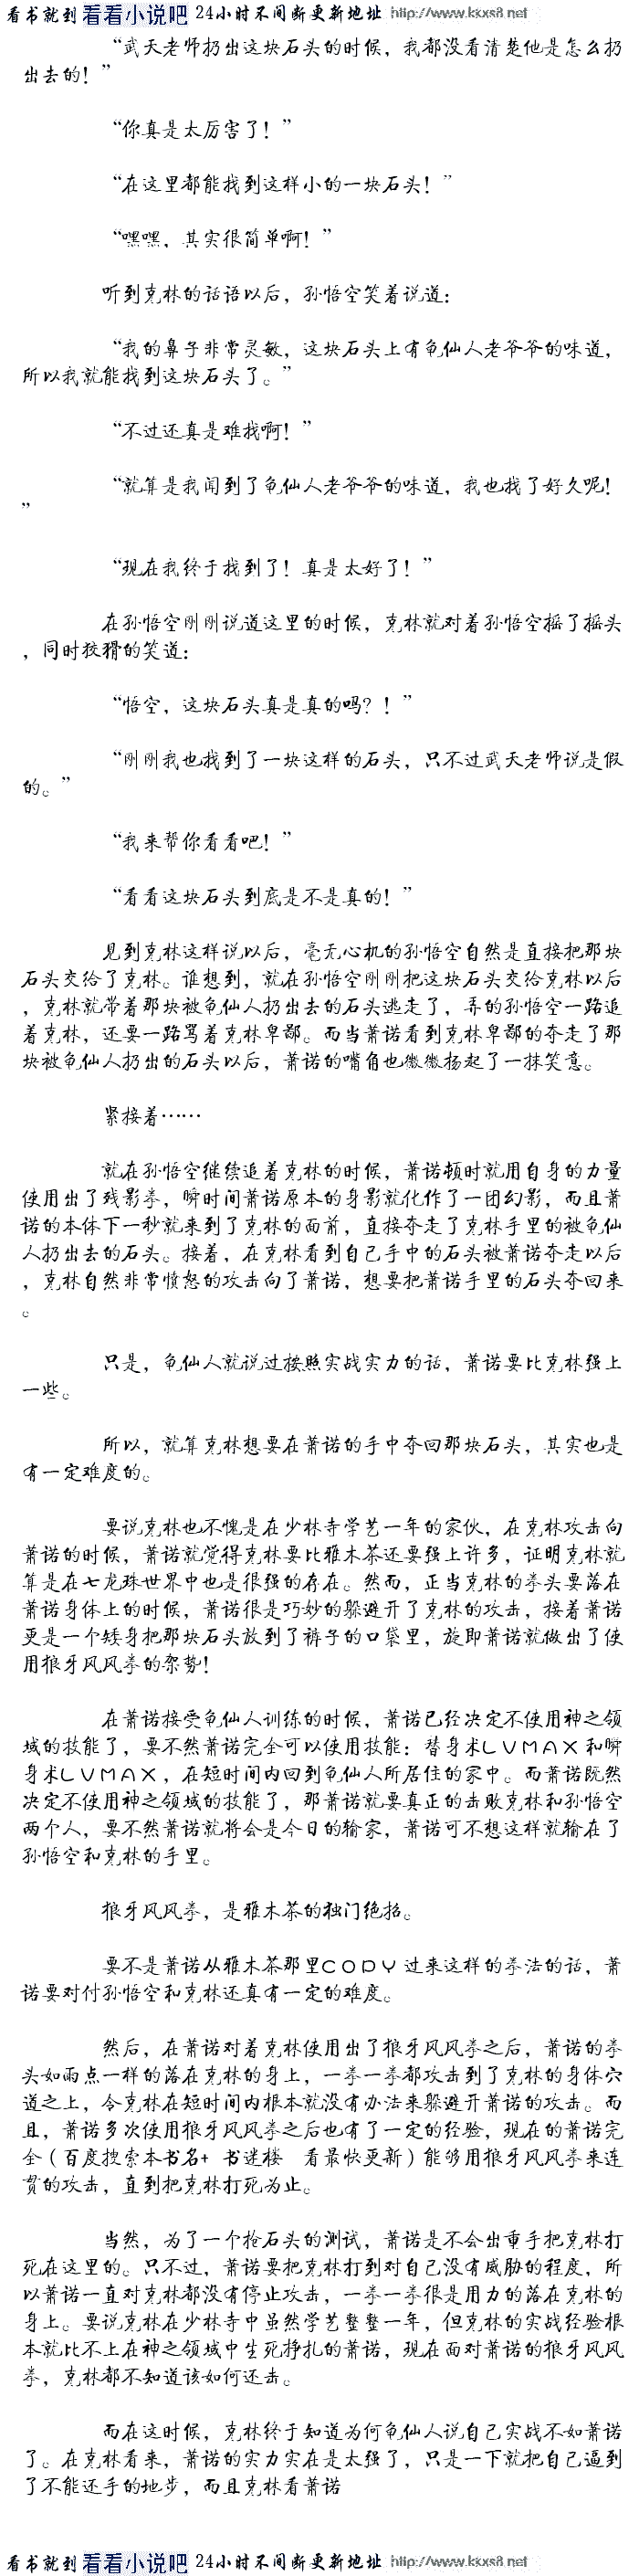 看书就到 看看小说吧 24小时不间断更新地址 http://www.kkxs8.net
“武天老师扔出这块石头的时候，我都没看清楚他是怎么扔
出去的！”
“你真是太厉害了！”
“在这里都能找到这样小的一块石头！”
“嘿嘿，其实很简单啊！”
听到克林的话语以后，孙悟空笑着说道：
“我的鼻子非常灵敏，这块石头上有龟仙人老爷爷的味道，
所以我就能找到这块石头了。”
“不过还真是难找啊！”
“就算是我闻到了龟仙人老爷爷的味道，我也找了好久呢！
”
“现在我终于找到了！真是太好了！”
在孙悟空刚刚说道这里的时候，克林就对着孙悟空摇了摇头
，同时狡猾的笑道：
“悟空，这块石头真是真的吗？！”
“刚刚我也找到了一块这样的石头，只不过武天老师说是假
的。”
“我来帮你看看吧！”
“看看这块石头到底是不是真的！”
见到克林这样说以后，毫无心机的孙悟空自然是直接把那块
石头交给了克林。谁想到，就在孙悟空刚刚把这块石头交给克林以后
，克林就带着那块被龟仙人扔出去的石头逃走了，弄的孙悟空一路追
着克林，还要一路骂着克林卑鄙。而当萧诺看到克林卑鄙的夺走了那
块被龟仙人扔出的石头以后，萧诺的嘴角也微微扬起了一抹笑意。
紧接着……
就在孙悟空继续追着克林的时候，萧诺顿时就用自身的力量
使用出了残影拳，瞬时间萧诺原本的身影就化作了一团幻影，而且萧
诺的本体下一秒就来到了克林的面前，直接夺走了克林手里的被龟仙
人扔出去的石头。接着，在克林看到自己手中的石头被萧诺夺走以后
，克林自然非常愤怒的攻击向了萧诺，想要把萧诺手里的石头夺回来
。
只是，龟仙人就说过按照实战实力的话，萧诺要比克林强上
一些。
所以，就算克林想要在萧诺的手中夺回那块石头，其实也是
有一定难度的。
要说克林也不愧是在少林寺学艺一年的家伙，在克林攻击向
萧诺的时候，萧诺就觉得克林要比雅木茶还要强上许多，证明克林就
算是在七龙珠世界中也是很强的存在。然而，正当克林的拳头要落在
萧诺身体上的时候，萧诺很是巧妙的躲避开了克林的攻击，接着萧诺
更是一个矮身把那块石头放到了裤子的口袋里，旋即萧诺就做出了使
用狼牙风风拳的架势！
在萧诺接受龟仙人训练的时候，萧诺已经决定不使用神之领
域的技能了，要不然萧诺完全可以使用技能：替身术LVMAX和瞬
身术LVMAX，在短时间内回到龟仙人所居住的家中。而萧诺既然
决定不使用神之领域的技能了，那萧诺就要真正的击败克林和孙悟空
两个人，要不然萧诺就将会是今日的输家，萧诺可不想这样就输在了
孙悟空和克林的手里。
狼牙风风拳，是雅木茶的独门绝招。
要不是萧诺从雅木茶那里COPY过来这样的拳法的话，萧
诺要对付孙悟空和克林还真有一定的难度。
然后，在萧诺对着克林使用出了狼牙风风拳之后，萧诺的拳
头如雨点一样的落在克林的身上，一拳一拳都攻击到了克林的身体穴
道之上，令克林在短时间内根本就没有办法来躲避开萧诺的攻击。而
且，萧诺多次使用狼牙风风拳之后也有了一定的经验，现在的萧诺完
全（百度搜索本书名+ 书迷楼 看最快更新）能够用狼牙风风拳来连
贯的攻击，直到把克林打死为止。
当然，为了一个抢石头的测试，萧诺是不会出重手把克林打
死在这里的。只不过，萧诺要把克林打到对自己没有威胁的程度，所
以萧诺一直对克林都没有停止攻击，一拳一拳很是用力的落在克林的
身上。要说克林在少林寺中虽然学艺整整一年，但克林的实战经验根
本就比不上在神之领域中生死挣扎的萧诺，现在面对萧诺的狼牙风风
拳，克林都不知道该如何还击。
而在这时候，克林终于知道为何龟仙人说自己实战不如萧诺
了。在克林看来，萧诺的实力实在是太强了，只是一下就把自己逼到
了不能还手的地步，而且克林看萧诺
看书就到 看看小说吧 24小时不间断更新地址 http://www.kkxs8.net